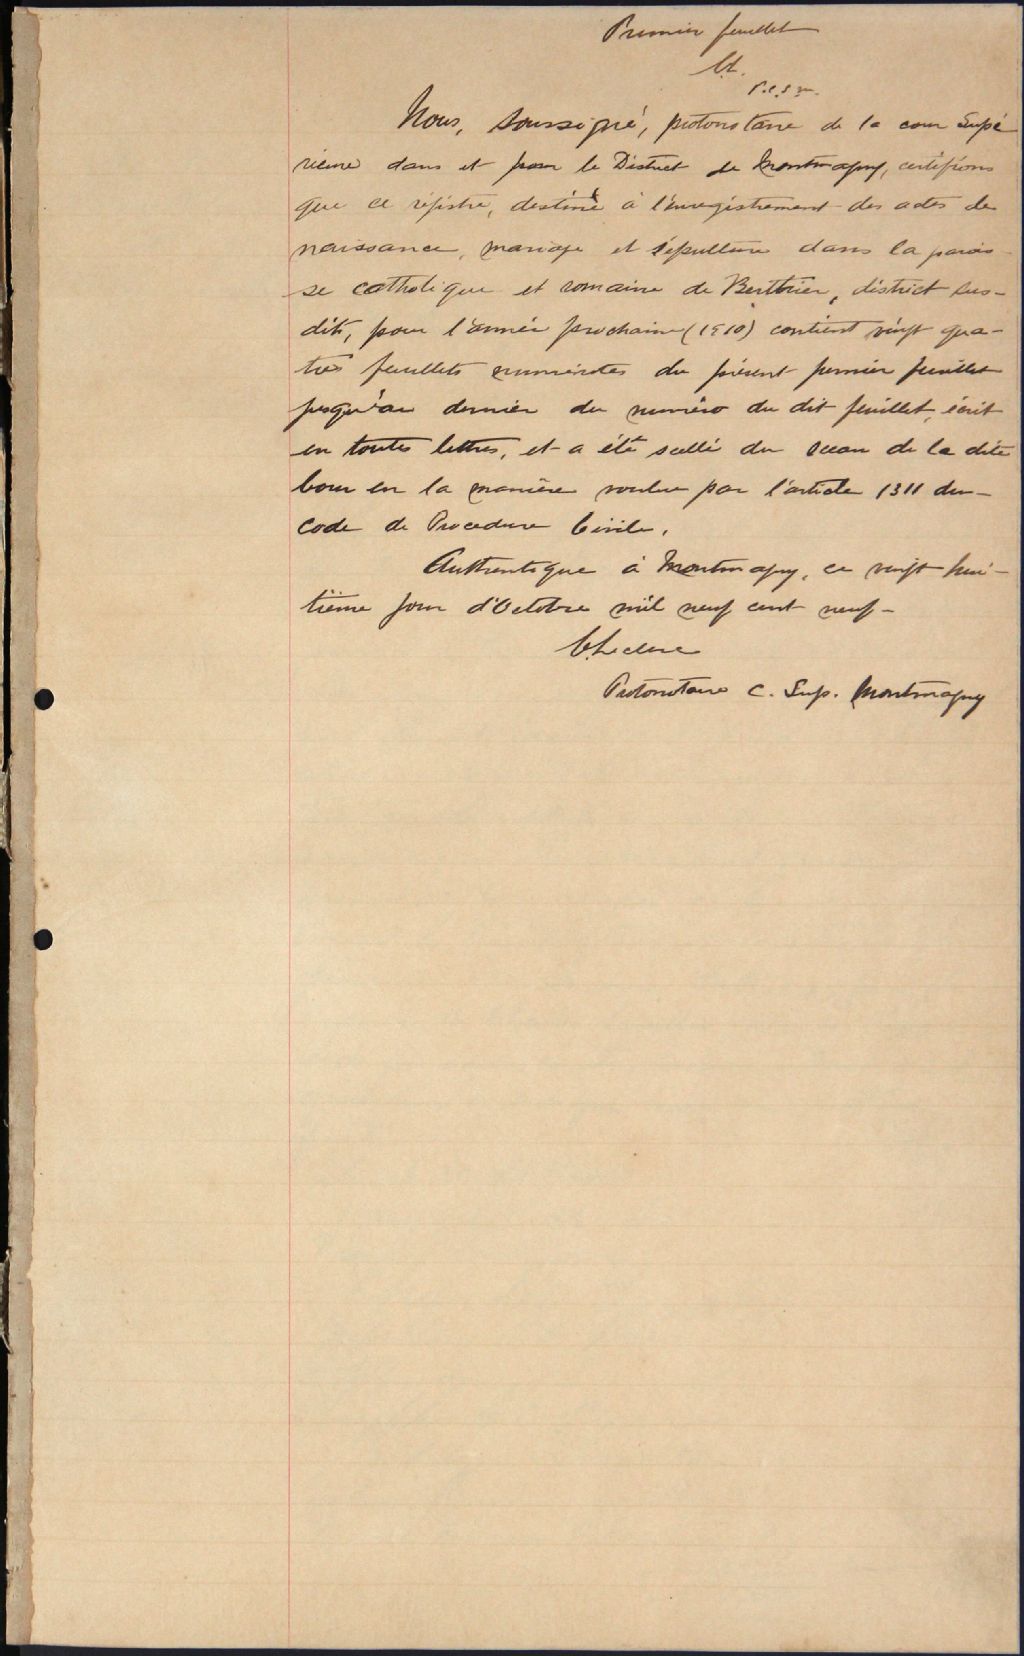 Premier feuillet
P.C.S.M.
Nous, soussigné, protonotaire de la cour Supé
rieure dans et pour le District de Montmagny, certifions
que ce régistre, destiné à l'enregistrement des actes de
naissance, mariage et sépulture dans la parois-
se catholique et romaine de Berthier, district sus-
dit, pour l'année prochaine (1910) contient vingt qua-
tre feuillets numérotés du présent premier feuillet
jusqu'au dernier du numéro du dit feuillet, écrit
en toutes lettres, et a été scellé du sceau de la dite
Cour en la manière voulue par l'article 1311 du
Code de Procedure Civile.
Authentique à Montmagny, ce vingt hui-
tième jour d'Octobre mil neuf cent neuf-
Leclerc
Protonotaire C. Sup. Montmagny